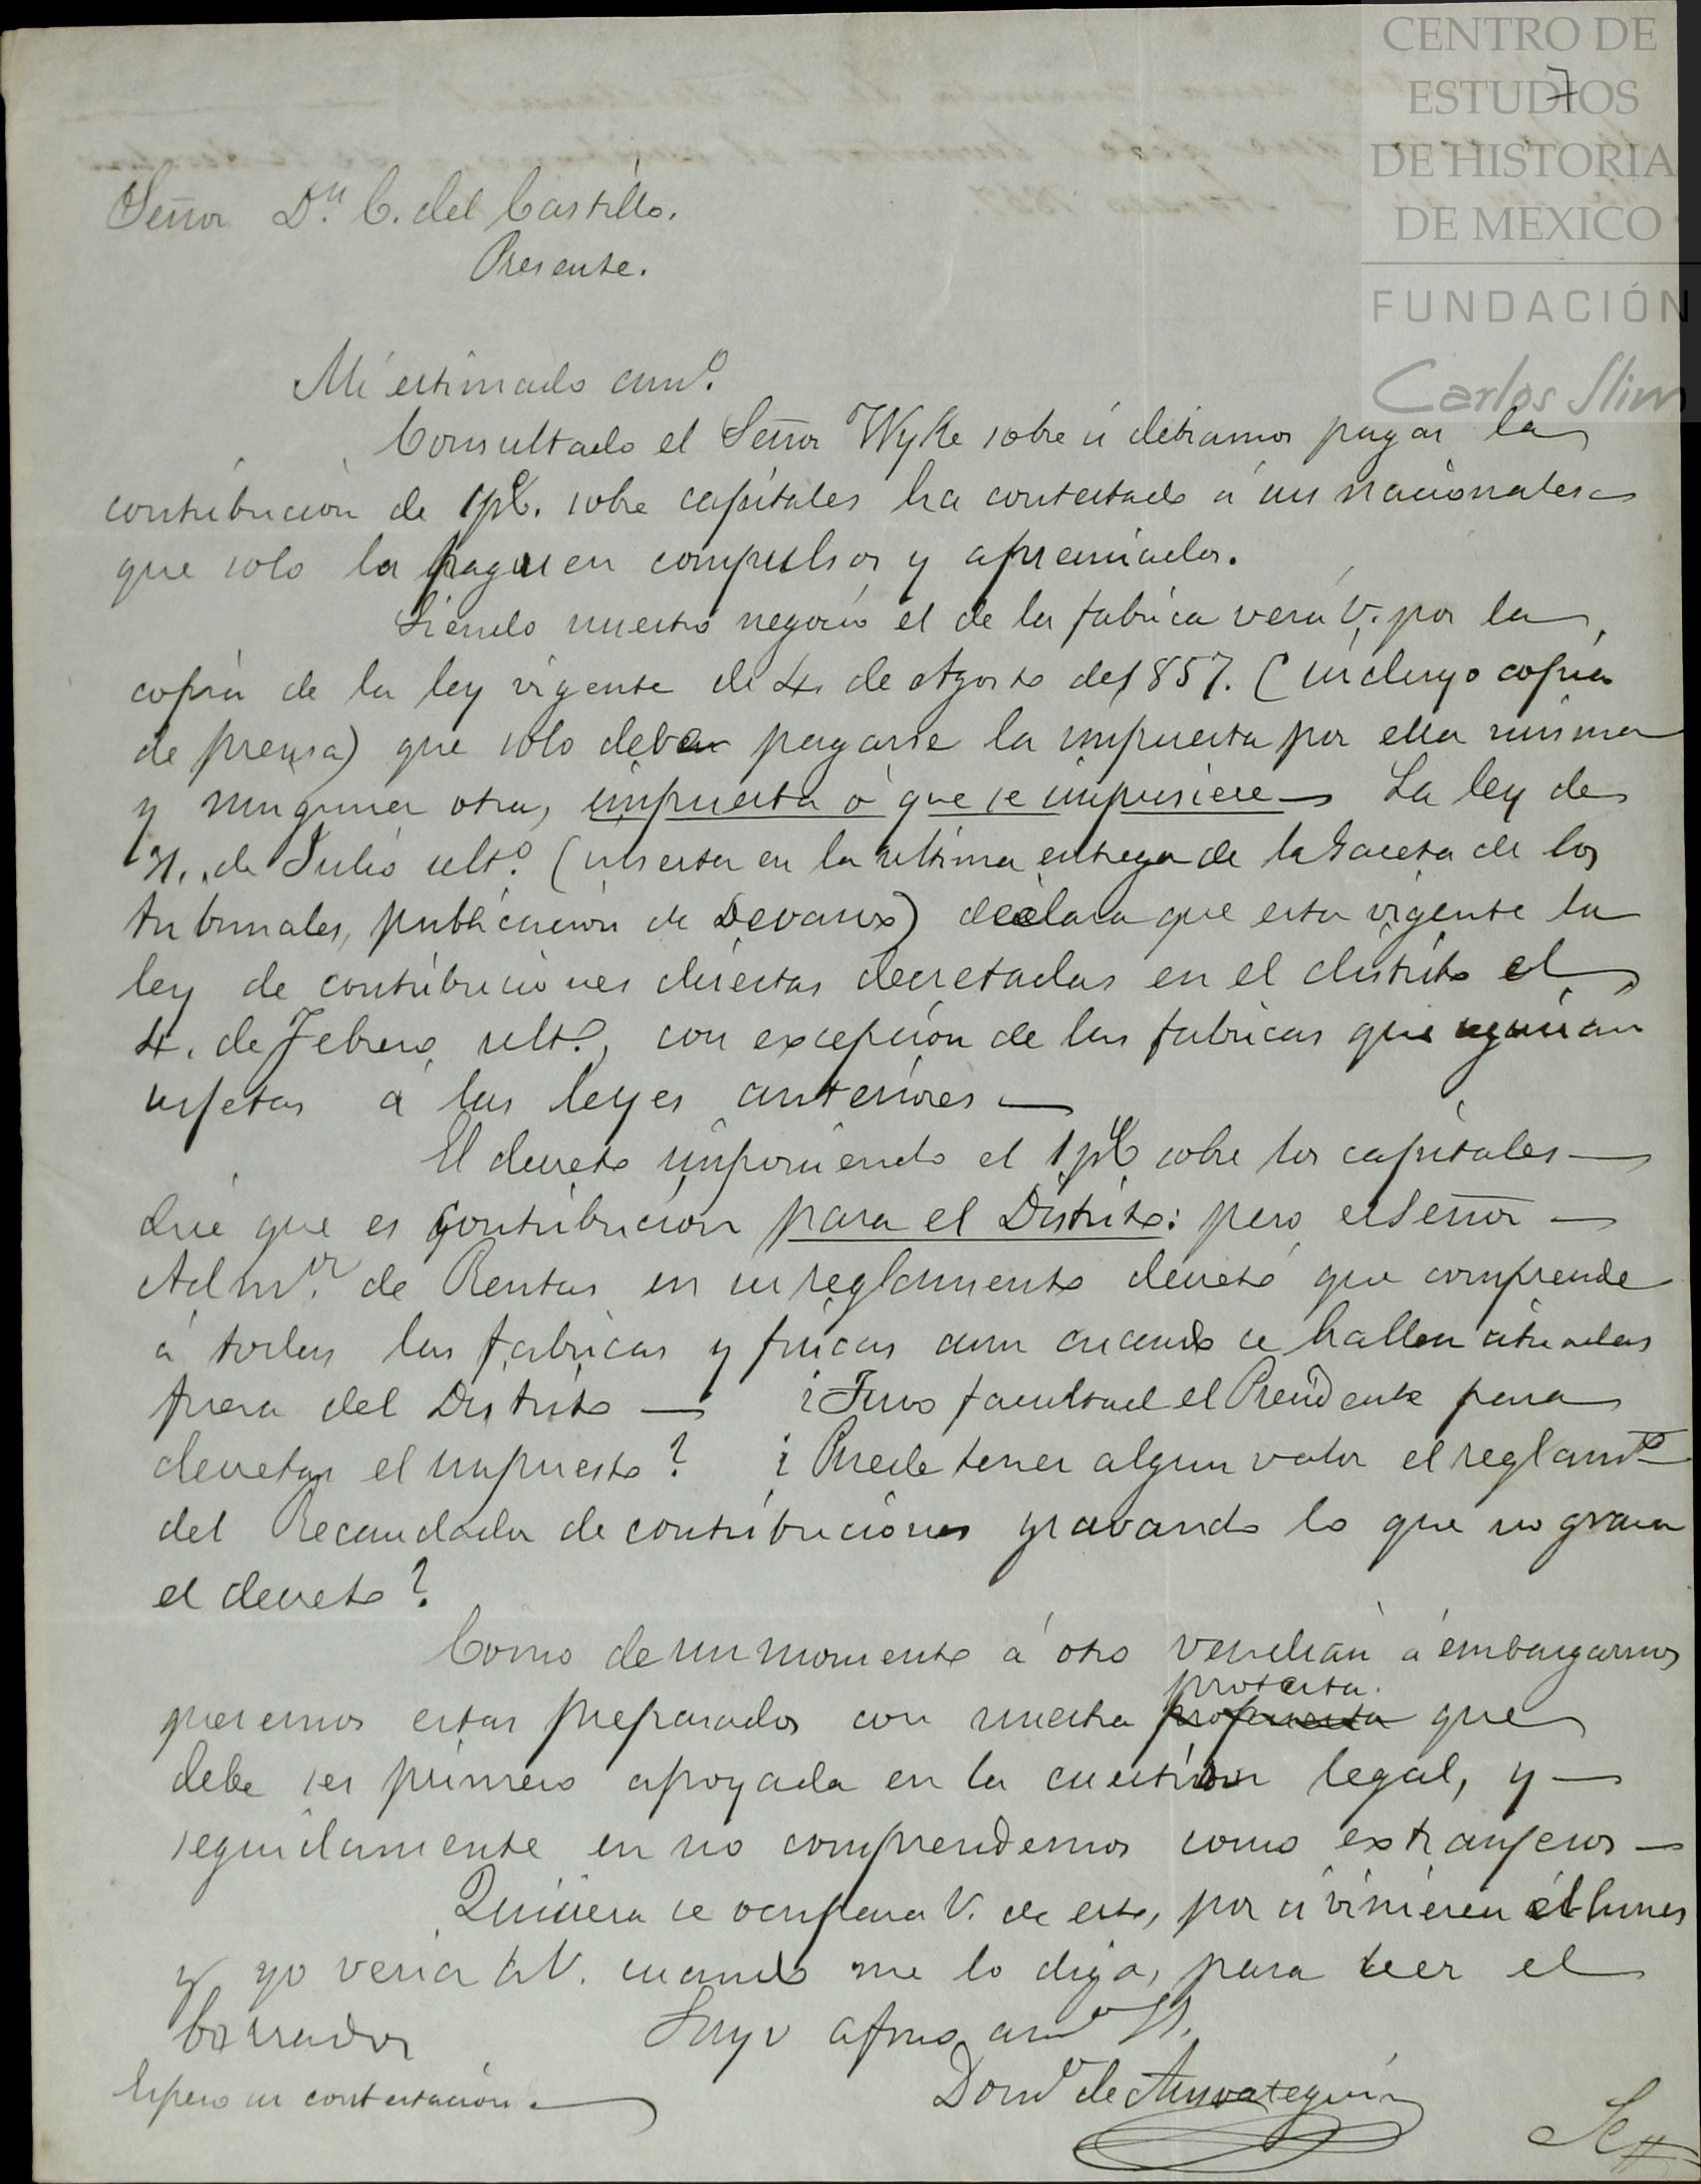 CENTRO DE
ESTUDIOS
DE HISTORIA
DE MEXICO
FUNDACIÓN
Carlos Slim
7
Señor Dn. C. del Castillo.
Presente.
Mi estimado amo.
Consultado el Señor Wyke sobre si debiamos pagar la
contribucion de 1 p%. sobre capitales ha contestado á sus nacionales
que solo la paguen compulsos y apremiados.
Siendo nuestro negocio el de la fabrica verá V. por la
copia de la ley vigente de 4. de Agosto de 1857. (incluyo copia
de prensa) que solo debe pagarse la impuesta por ella misma
y ninguna otra, impuesta ó que se impusiere — La ley de
de Julio ulto. (inserta en la ultima entrega de la Gaceta de los
tribunales, publicacion de Devaux) declara que esta vigente la
ley de contribuciones directas decretadas en el distrito el
4. de Febrero ulto., con excepcion de las fabricas que seguirian
sujetas á las leyes anteriores —
El decreto imponiendo el 1 p% sobre los capitales —
dice que es contribucion para el Distrito: pero el Señor —
Admor. de Rentas en su reglamento decretó que comprende
á todas las fabricas y fincas aun cuando se hallen situadas
fuera del Distrito — ¿Tuvo facultad el Presidente para
decretar el impuesto? ¿Puede tener algun valor el reglamto
del Recaudador de contribuciones gravando lo que no grava
el decreto?
Como de un momento á otro vendrian á embargarnos
protesta.
queremos estar preparados con nuestra propuesta que
debe ser primero apoyada en la cuestion legal, y —
seguidamente en no comprendernos como extranjeros —
Quisiera se ocupara V. de esto, por si vinieren el lunes
y yo veria á V. cuando me lo diga, para leer el
borrador Suyo afmo amo S.
Espero su contestacion. — Domo de Ansoategui